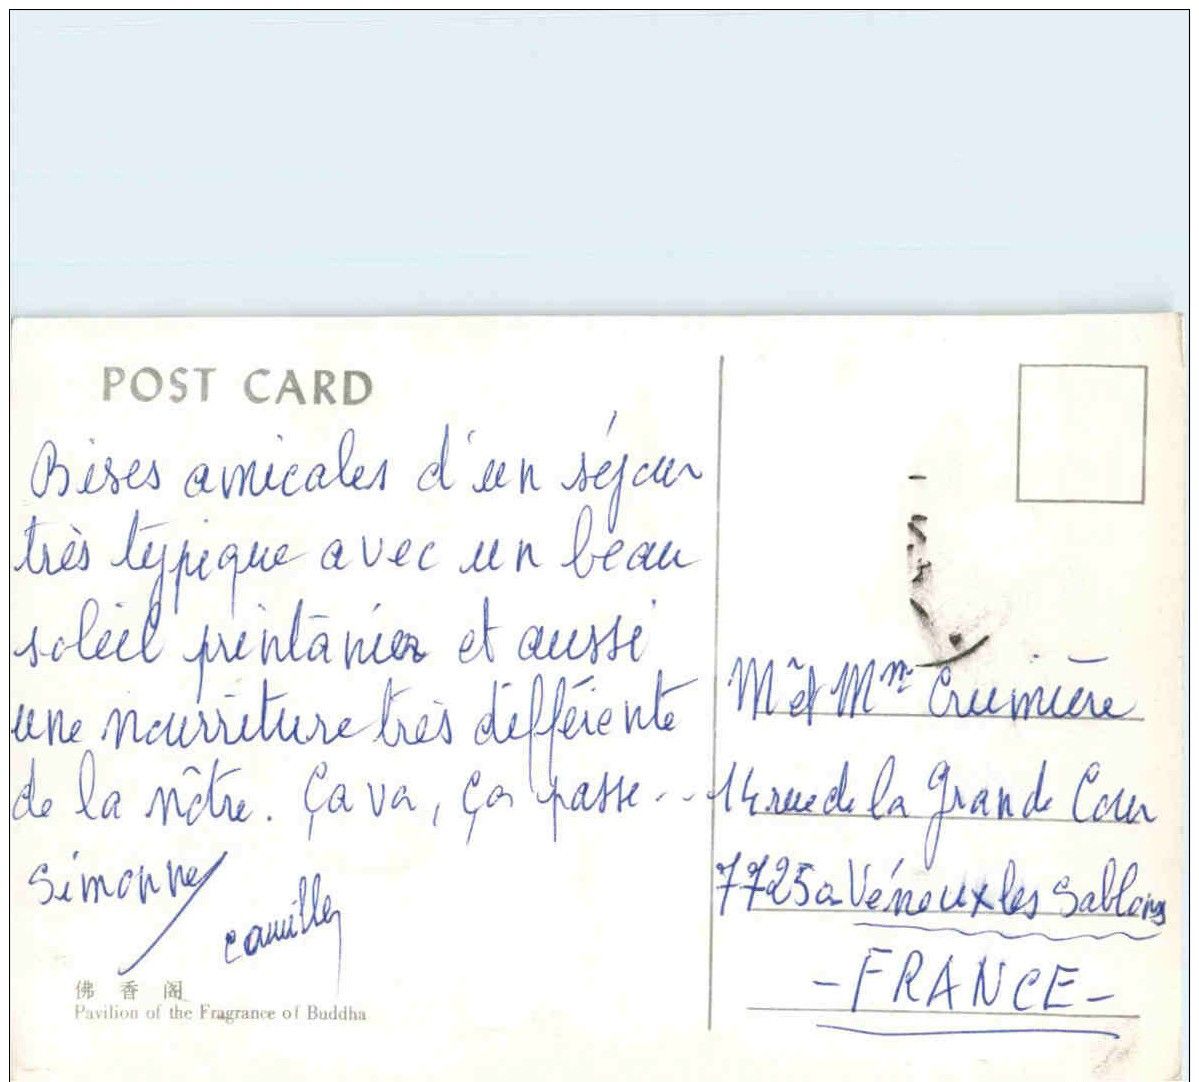 POST CARD
Bises amicales d'un séjour
très typique avec un beau
soleil printanier et aussi
une nourriture très différente
de la nôtre. Ça va, ça passe...
Simonne
Camille
佛香阁
Pavilion of the Fragrance of Buddha
Mr et Mme Crumière
14 rue de la Grande Cour
77250 Véneux les Sablons
- FRANCE -